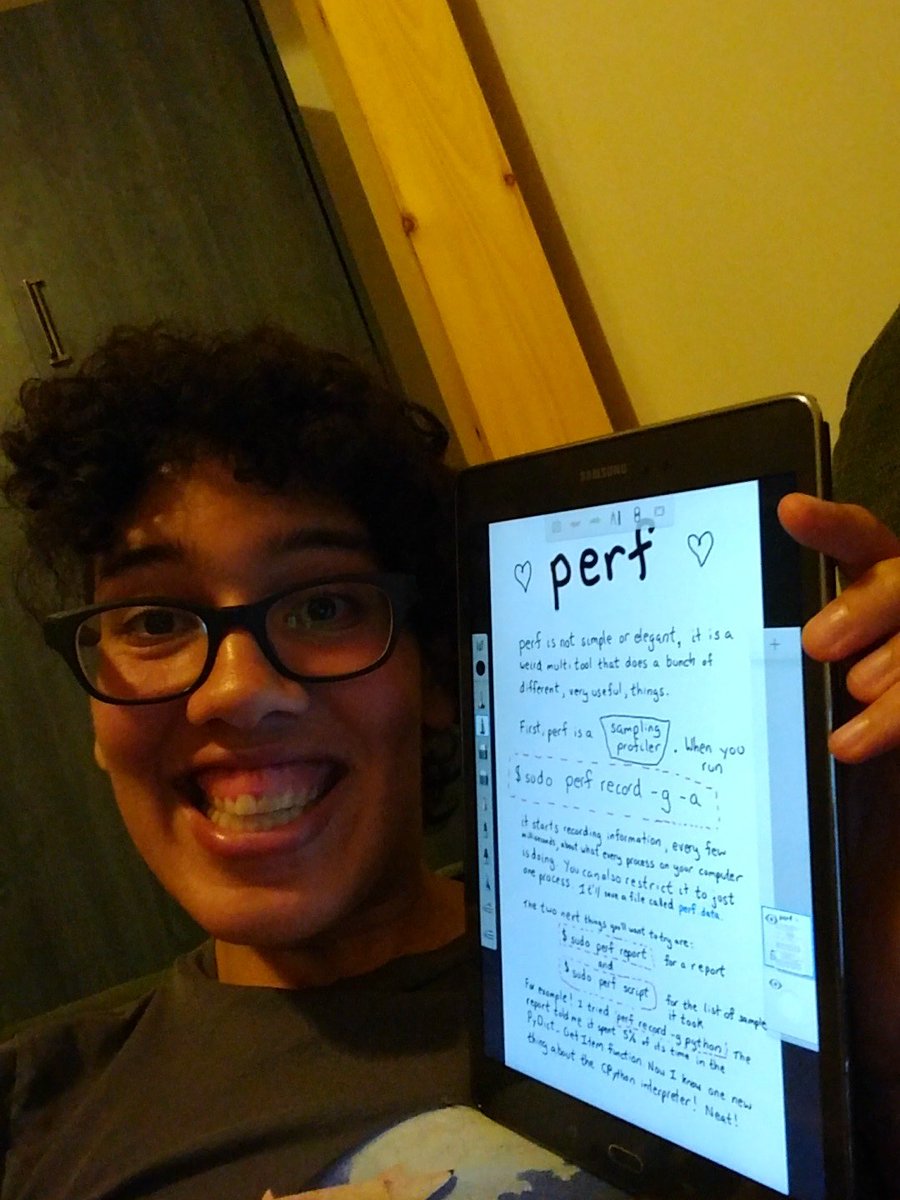 SAMSUNG
perf
perf is not simple or elegant, it is a
weird multi tool that does a bunch of
different, very useful, things.
First, perf is a sampling profiler. When you
run
$ sudo perf record -g -a
it starts recording information, every few
milliseconds, about what every process on your computer
is doing. You can also restrict it to just
one process. It'll save a file called perf data.
The two next things you'll want to try are:
$ sudo perf report for a report
and
$ sudo perf script for the list of sample
it took
For example! I tried perf record -g python; The
report told me it spent 5% of its time in the
PyDict_GetItem function. Now I know one new
thing about the CPython interpreter! Neat!